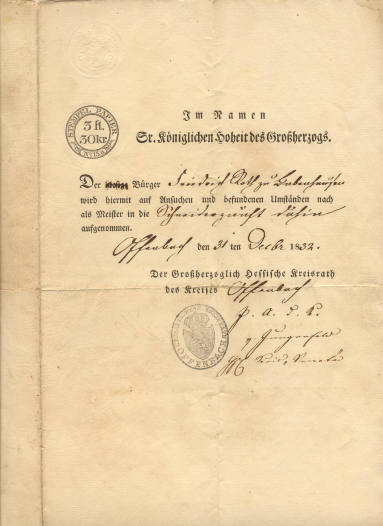 STEMPEL PAPIER
3 fl.
30 kr.
Im Namen
Sr. Königlichen Hoheit des Großherzogs.
Der Bürger Friedrich Roth zu Babenhausen
wird hiermit auf Ansuchen und befundenen Umständen nach
als Meister in die Schneiderzunft dahin
aufgenommen.
Offenbach den 31ten Decbr 1832.
Der Großherzoglich Hessische Kreisrath
des Kreises Offenbach
OFFENBACH